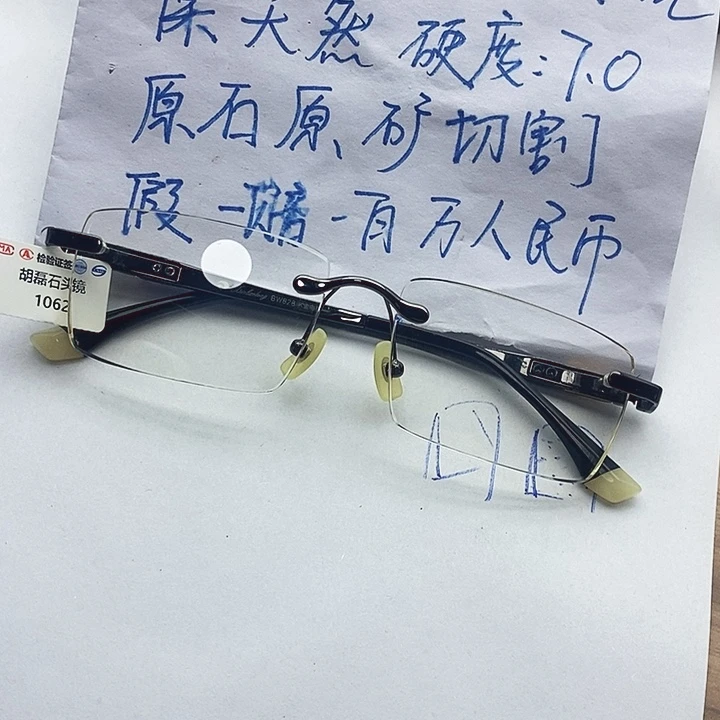 保天然 硬度:7.0
原石原矿切割
假一赔一百万人民币
检验证签
胡磊石头镜
1062
BW828